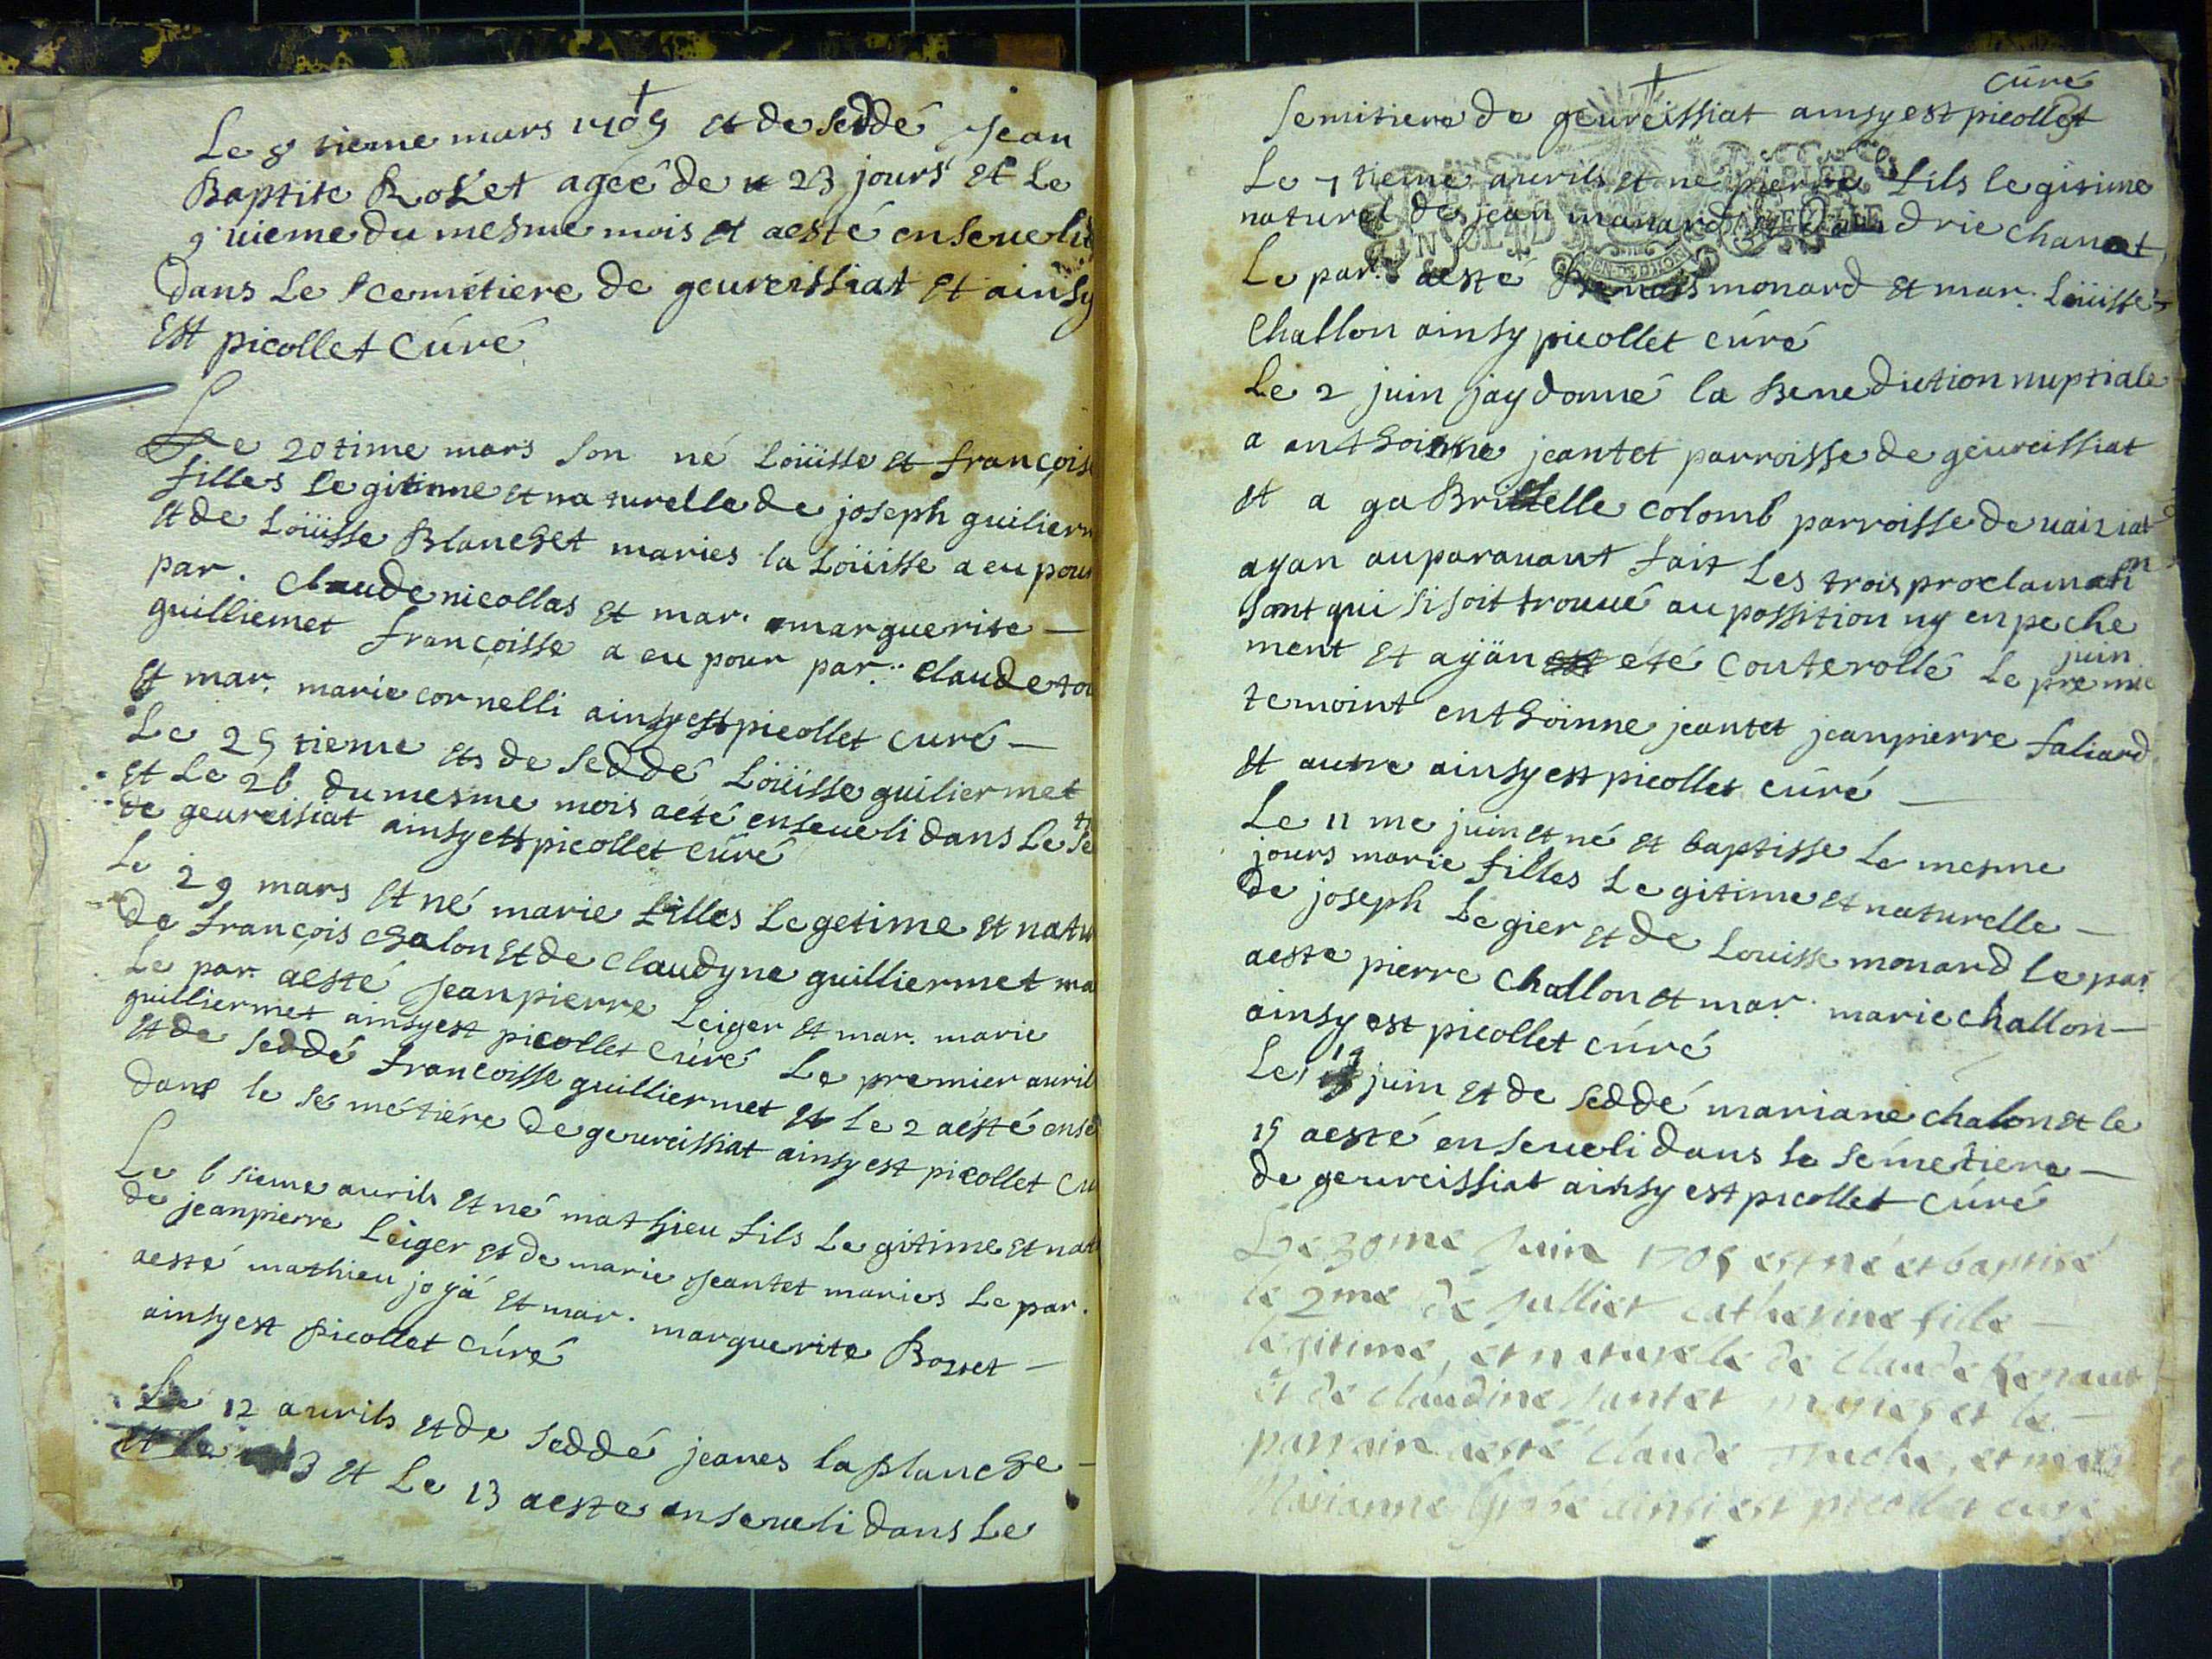 Le 8 tieme mars 1705 et de seddé Jean
Baptite Rolet ageé de 23 jours et Le
9 uieme du mesme mois et aesté enseueli
dans Le scemétiere de geureissiat et ainsy
est picollet cúré
Le 20 time mars son né Loüisse et françois
filles Le gitinne et naturelle de joseph guilierm
et de Loüisse Blanchet maries la Loüisse a eu pour
par. claude nicollas et mar. marguerite —
guilliemet francoisse a eu pour par. claude
et mar. marie cornelli ainsy est picollet curé —
Le 25 tieme et de seddé Loüisse guiliermet
et Le 26 du mesme mois aeté enseueli dans Le se
de geureissiat ainsy est picollet cúré
Le 29 mars et né marie filles Legetime et natu
de françois chalon et de claudyne guilliermet ma
Le par. aesté Jeanpierre Leiger et mar. marie
guilliermet ainsy est picollet cúré Le premier auril
et de seddé francoisse guilliermet et Le 2 aésté ense
dans le sé métiére de geureissiat ainsy est picollet cu
Le 6 sieme aurils et né mathieu fils Le gitime et nat
de jeanpierre Leiger et de marie Jeantet maries Le par.
aesté mathieu jo yá et mar. marguerite Bosset —
ainsy est picollet cúré
Le 12 aurils et de seddé jeanes la planche —
et le 3 et Le 13 aeste enseueli dans Le
cúré
semitiere de geureissiat ainsy est picollet
Le 7 tieme aurils et né pierre fils legitime
naturel de jean monard drie chanat
Le par. aesté monard et mar. Loüisse
challon ainsy picollet cúré
Le 2 juin jay donné la Benediction nuptiale
a anthoinne jeantet parroisse de geureissiat
et a gabrielle colomb parroisse de uaiziat
ayan auparauant fait Les trois proclamatin
sant qui si soit trouué au possition ny enpeche
juin
ment et ayän est été conterollé Le premie
temoint enthoinne jeantet jeanpierre faliard
et autre ainsy est picollet cúré —
Le 11 me juin et né et baptisse Le mesme
jours marie filles Le gitime et naturelle —
de joseph Legier et de Louisse monard Le par.
aeste pierre challon et mar. marie challon —
ainsy est picollet cúré
Le 14 juin et de seddé mariane chalon et le
15 aesté enseueli dans Le sémetiere —
de geureissiat ainsy est picollet cúré
Le 30me Juin 1705 est né et baptisé
le 2me de Julliet catherine fille —
legitime, et naturelle de claude
et de claudine Jantet mariés et le —
parrain aesté claude et
Marianne ainsi est picollet curé